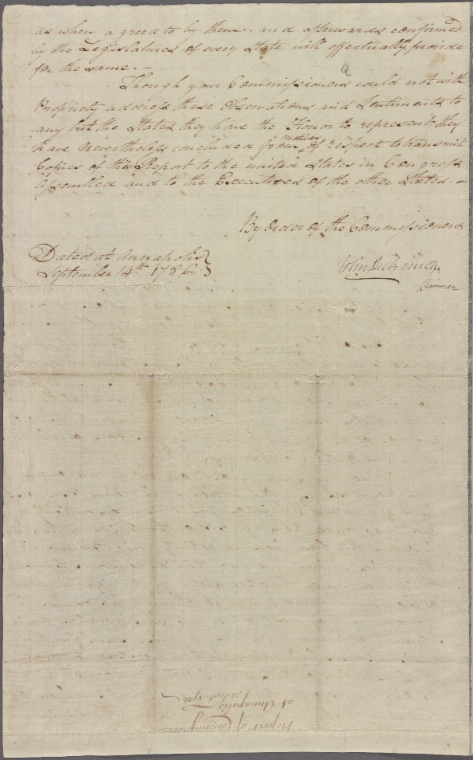 as when agreed to by them and afterwards confirmed
by the Legislatures of every State will effectually provide
for the same. —
Though your Commissioners could not with
Propriety address these Observations and Sentiments to
any but the States they have the Honor to represent, they
have nevertheless concluded from motives of respect to transmit
Copies of this Report to the united States in Congress
assembled and to the Executives of the other States. —
By order of the Commissioners
Dated at Annapolis
September 14th 1786
John Dickinson
Chairman
Report of Commissioners
at Annapolis